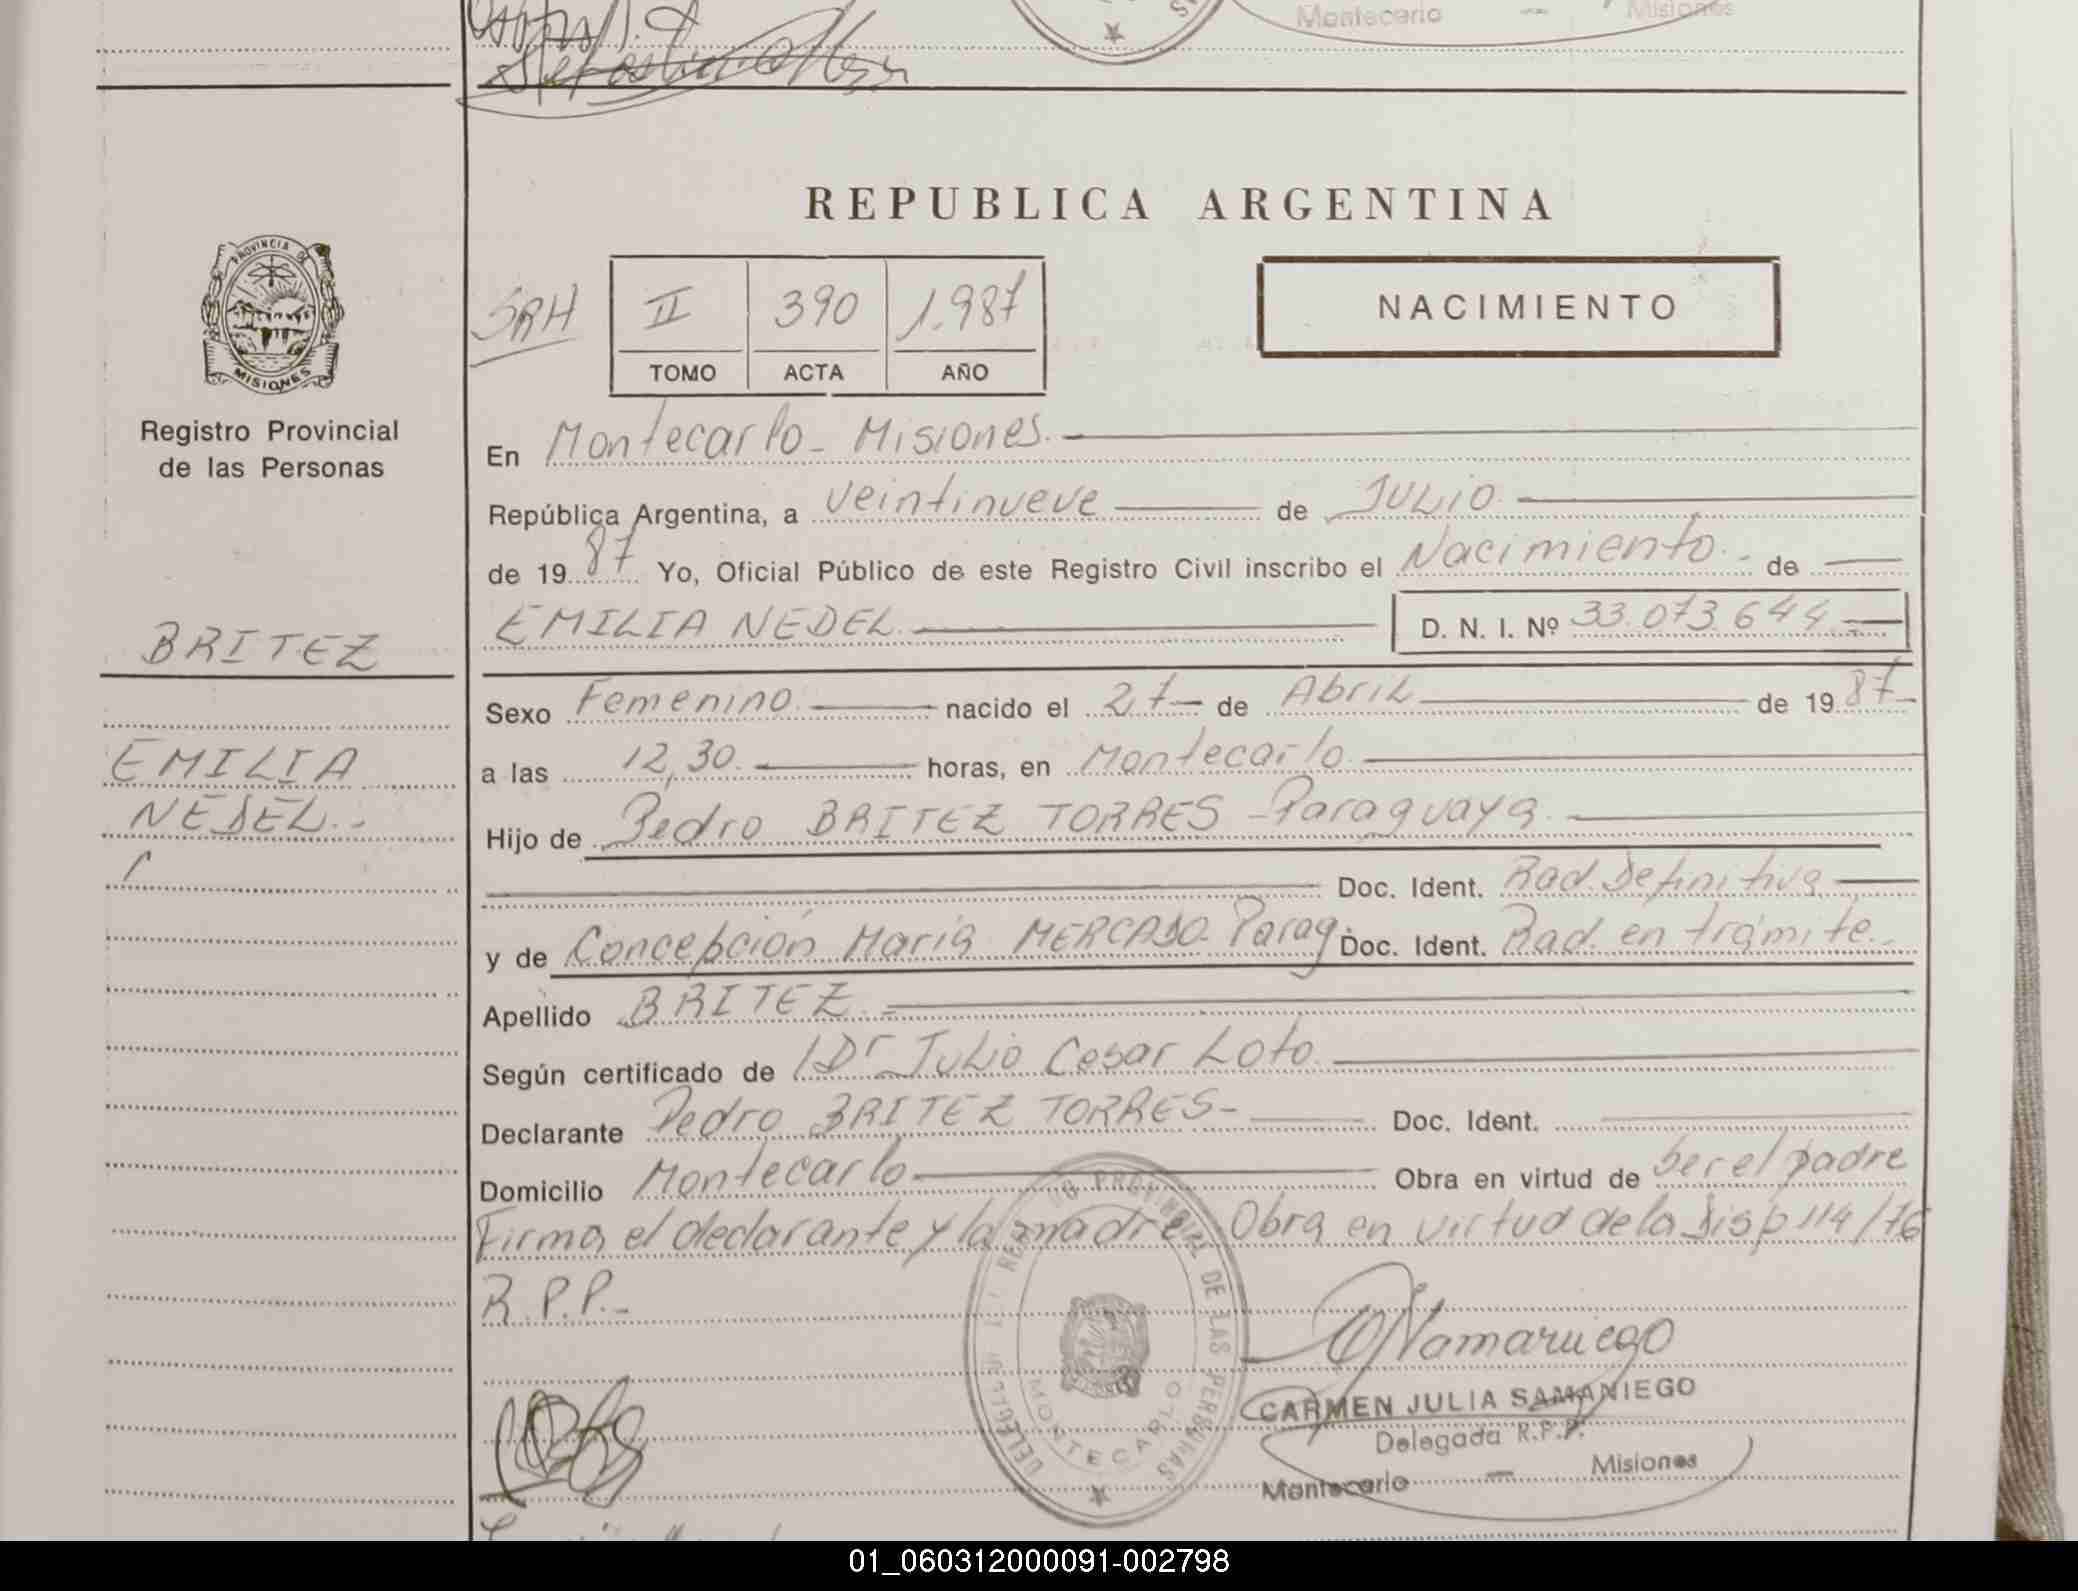 Montecarlo — Misiones
REPUBLICA ARGENTINA
PROVINCIA DE
MISIONES
SRH
II 390 1.987
TOMO ACTA AÑO
NACIMIENTO
Registro Provincial
de las Personas
En Montecarlo - Misiones.
República Argentina, a veintinueve de JULIO
de 1987 Yo, Oficial Público de este Registro Civil inscribo el Nacimiento.- de
EMILIA NEDEL. D. N. I. Nº 33.073.644.-
BRITEZ
EMILIA
NEDEL.-
Sexo Femenino nacido el 27 de Abril de 1987
a las 12,30. horas, en Montecarlo.
Hijo de Pedro BRITEZ TORRES - Paraguaya.
Doc. Ident. Rad. Definitiva
y de Concepción María MERCADO - Parag. Doc. Ident. Rad. en trámite.-
Apellido BRITEZ.-
Según certificado de Dr Julio Cesar Loto.
Declarante Pedro BRITEZ TORRES - Doc. Ident.
Domicilio Montecarlo Obra en virtud de ser el padre
Firma el declarante y la madre. Obra en virtud de la Disp 114/76
R.P.P.-
REGISTRO PROVINCIAL DE LAS PERSONAS
MONTECARLO
CARMEN JULIA SAMANIEGO
Delegada R.P.P.
Montecarlo — Misiones
01_060312000091-002798